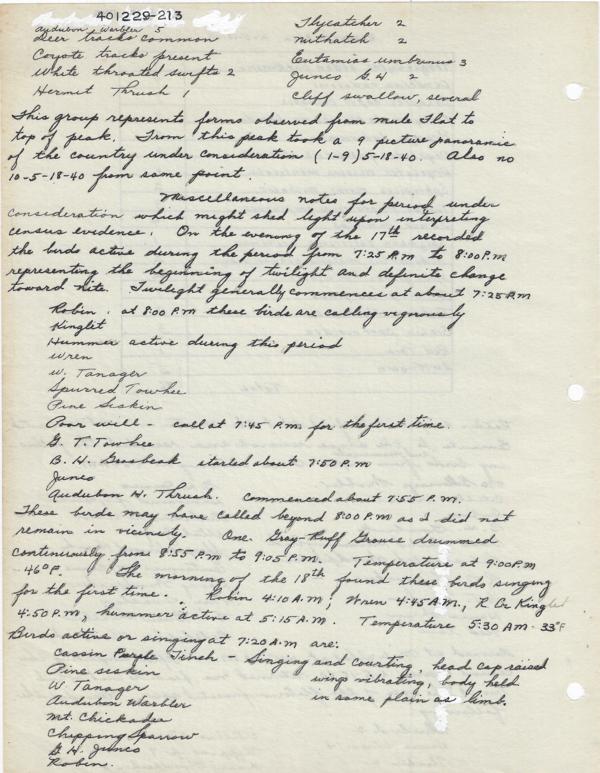 401229-213
Audubon Warbler 5
Deer tracks common
Coyote tracks present
White throated swifts 2
Hermit Thrush 1
Flycatcher 2
Nuthatch 2
Eutamias umbrinus 3
Junco G.H 2
Cliff swallow, several
This group represents forms observed from mule Flat to
top of peak. From this peak took a 9 picture panoramic
of the country under consideration (1-9) 5-18-40. Also no
10-5-18-40 from same point.
Miscellaneous notes for period under
consideration which might shed light upon interpreting
census evidence. On the evening of the 17th recorded
the birds active during the period from 7:25 P.M to 8:00 P.M
representing the beginning of twilight and definite change
toward nite. Twilight generally commences at about 7:25 P.M
Robin. at 8:00 P.M these birds are calling vigorously
Kinglet
Hummer active during this period
Wren
W. Tanager
Spurred Towhee
Pine Siskin
Poor will - call at 7:45 P.M. for the first time.
G. T. Towhee
B. H. Grosbeak started about 7:50 P.M
Junco
Audubon H. Thrush. Commenced about 7:55 P.M.
These birds may have called beyond 8:00 P.M as I did not
remain in vicinity. One Gray-Ruff Grouse drummed
continuously from 8:55 P.M to 9:05 P.M. Temperature at 9:00 P.M
46°F. The morning of the 18th found these birds singing
for the first time. Robin 4:10 A.M; Wren 4:45 A.M., R Cr Kinglet
4:50 P.M, hummer active at 5:15 A.M. Temperature 5:30 AM. 33°F
Birds active or singing at 7:20 A.M are:
Cassin Purple Finch - Singing and courting, head cap raised
Pine siskin wings vibrating, body held
W Tanager in same plain as limb.
Audubon Warbler
Mt. Chickadee
Chipping Sparrow
G. H. Junco
Robin.